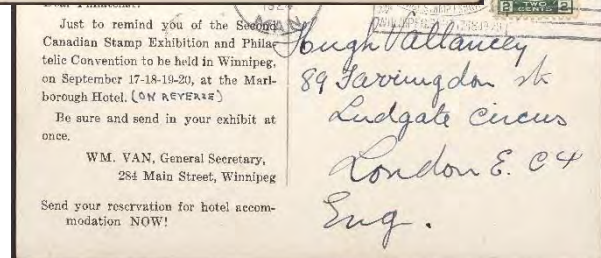 Dear Philatelist:
Just to remind you of the Second
Canadian Stamp Exhibition and Phila-
telic Convention to be held in Winnipeg,
on September 17-18-19-20, at the Marl-
borough Hotel. (ON REVERSE)
Be sure and send in your exhibit at
once.
WM. VAN, General Secretary,
284 Main Street, Winnipeg
Send your reservation for hotel accom-
modation NOW!
MAN.
2 TWO CENTS 2
Hugh Vallancey
89 Farringdon St
Ludgate Circus
London E. C4
Eng.